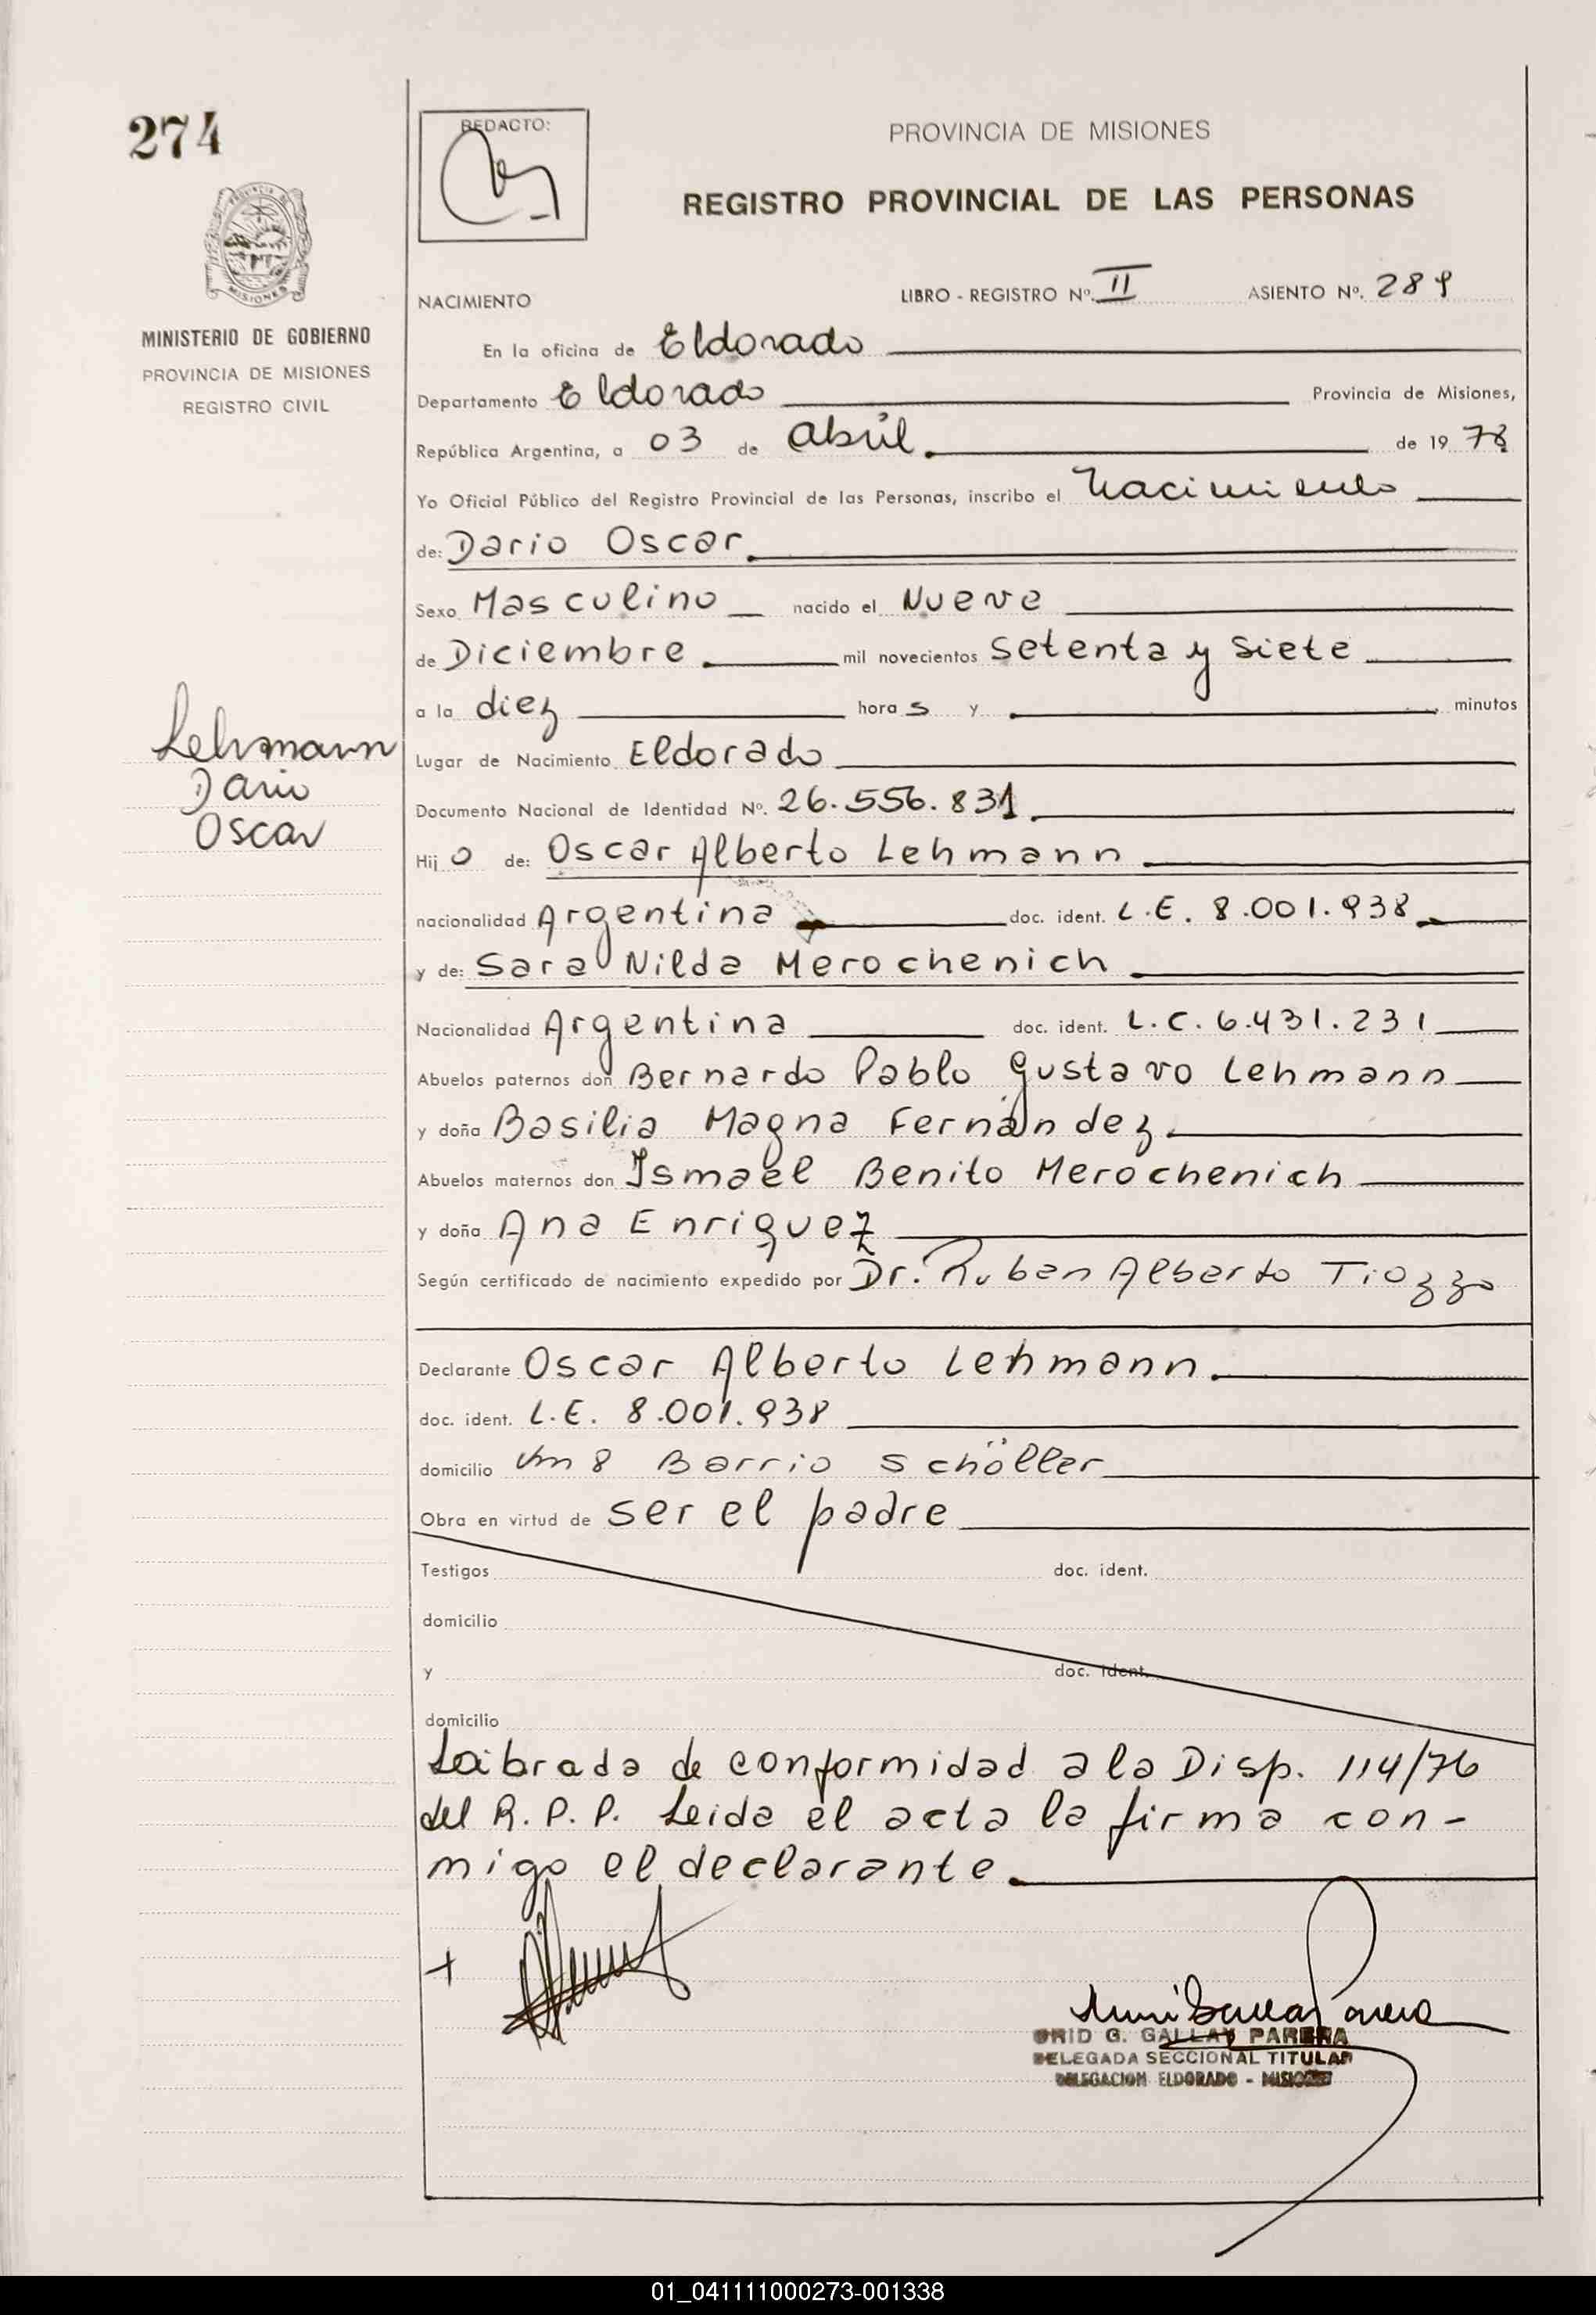 274
REDACTO:
PROVINCIA DE MISIONES
REGISTRO PROVINCIAL DE LAS PERSONAS
MISIONES
MINISTERIO DE GOBIERNO
PROVINCIA DE MISIONES
REGISTRO CIVIL
NACIMIENTO LIBRO - REGISTRO Nº. II ASIENTO Nº. 289
En la oficina de Eldorado
Departamento Eldorado Provincia de Misiones,
República Argentina, a 03 de abril. de 19 78
Yo Oficial Público del Registro Provincial de las Personas, inscribo el Nacimiento
de: Dario Oscar.
Sexo Masculino nacido el Nueve
de Diciembre. mil novecientos setenta y siete
a la diez hora s y minutos
Lehmann
Dario
Oscar
Lugar de Nacimiento Eldorado
Documento Nacional de Identidad Nº. 26.556.831.
Hij o de: Oscar Alberto Lehmann
nacionalidad Argentina doc. ident. L.E. 8.001.938
y de: Sara Nilda Merochenich
Nacionalidad Argentina doc. ident. L.C. 6.431.231
Abuelos paternos don Bernardo Pablo Gustavo Lehmann
y doña Basilia Magna Fernández.
Abuelos maternos don Ismael Benito Merochenich
y doña Ana Enriquez
Según certificado de nacimiento expedido por Dr. Ruben Alberto Tiozzo
Declarante Oscar Alberto Lehmann.
doc. ident. L.E. 8.001.938
domicilio Km 8 Barrio Schöller
Obra en virtud de ser el padre
Testigos doc. ident.
domicilio
y doc. ident.
domicilio
Labrada de conformidad a la Disp. 114/76
del R.P.P. Leida el acta la firma con-
migo el declarante.
+
GRID G. GALLAY PARERA
DELEGADA SECCIONAL TITULAR
DELEGACION ELDORADO - MISIONES
01_041111000273-001338